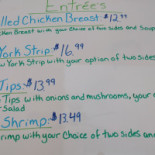 Entrées
lled Chicken Breast $12.99
r Chicken Breast with your choice of two sides and Soup
York Strip $16.99
w York Strip with your option of two sides
Tips: $13.99
Tips with onions and mushrooms, your c
Salad
Shrimp: $13.49
rimp with your Choice of two sides an